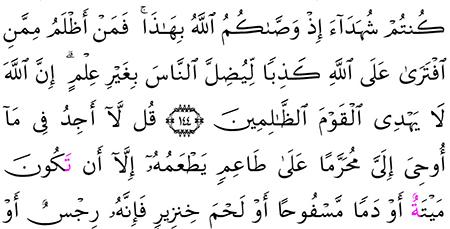 كُنتُمْ شُهَدَآءَ إِذْ وَصَّىٰكُمُ ٱللَّهُ بِهَٰذَا ۚ فَمَنْ أَظْلَمُ مِمَّنِ
ٱفْتَرَىٰ عَلَى ٱللَّهِ كَذِبًا لِّيُضِلَّ ٱلنَّاسَ بِغَيْرِ عِلْمٍ ۗ إِنَّ ٱللَّهَ
لَا يَهْدِى ٱلْقَوْمَ ٱلظَّٰلِمِينَ ﴿١٤٤﴾ قُل لَّآ أَجِدُ فِى مَآ
أُوحِىَ إِلَىَّ مُحَرَّمًا عَلَىٰ طَاعِمٍ يَطْعَمُهُۥٓ إِلَّآ أَن تَكُونَ
مَيْتَةٌ أَوْ دَمًا مَّسْفُوحًا أَوْ لَحْمَ خِنزِيرٍ فَإِنَّهُۥ رِجْسٌ أَوْ